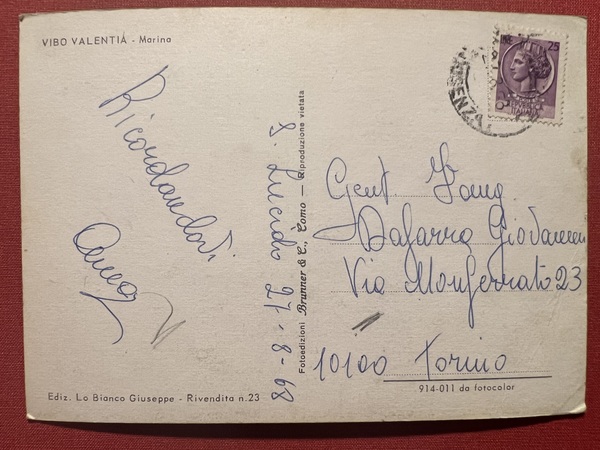 VIBO VALENTIÀ - Marina
25
Ricordandoti
Anna
S. Lucido 27-8-68
Fotoedizioni Brunner & C., Como — Riproduzione vietata
Gent. Fam.
Dafarra Giovanni
Via Monferrato 23
10100 Torino
914-011 da fotocolor
Ediz. Lo Bianco Giuseppe - Rivendita n.23